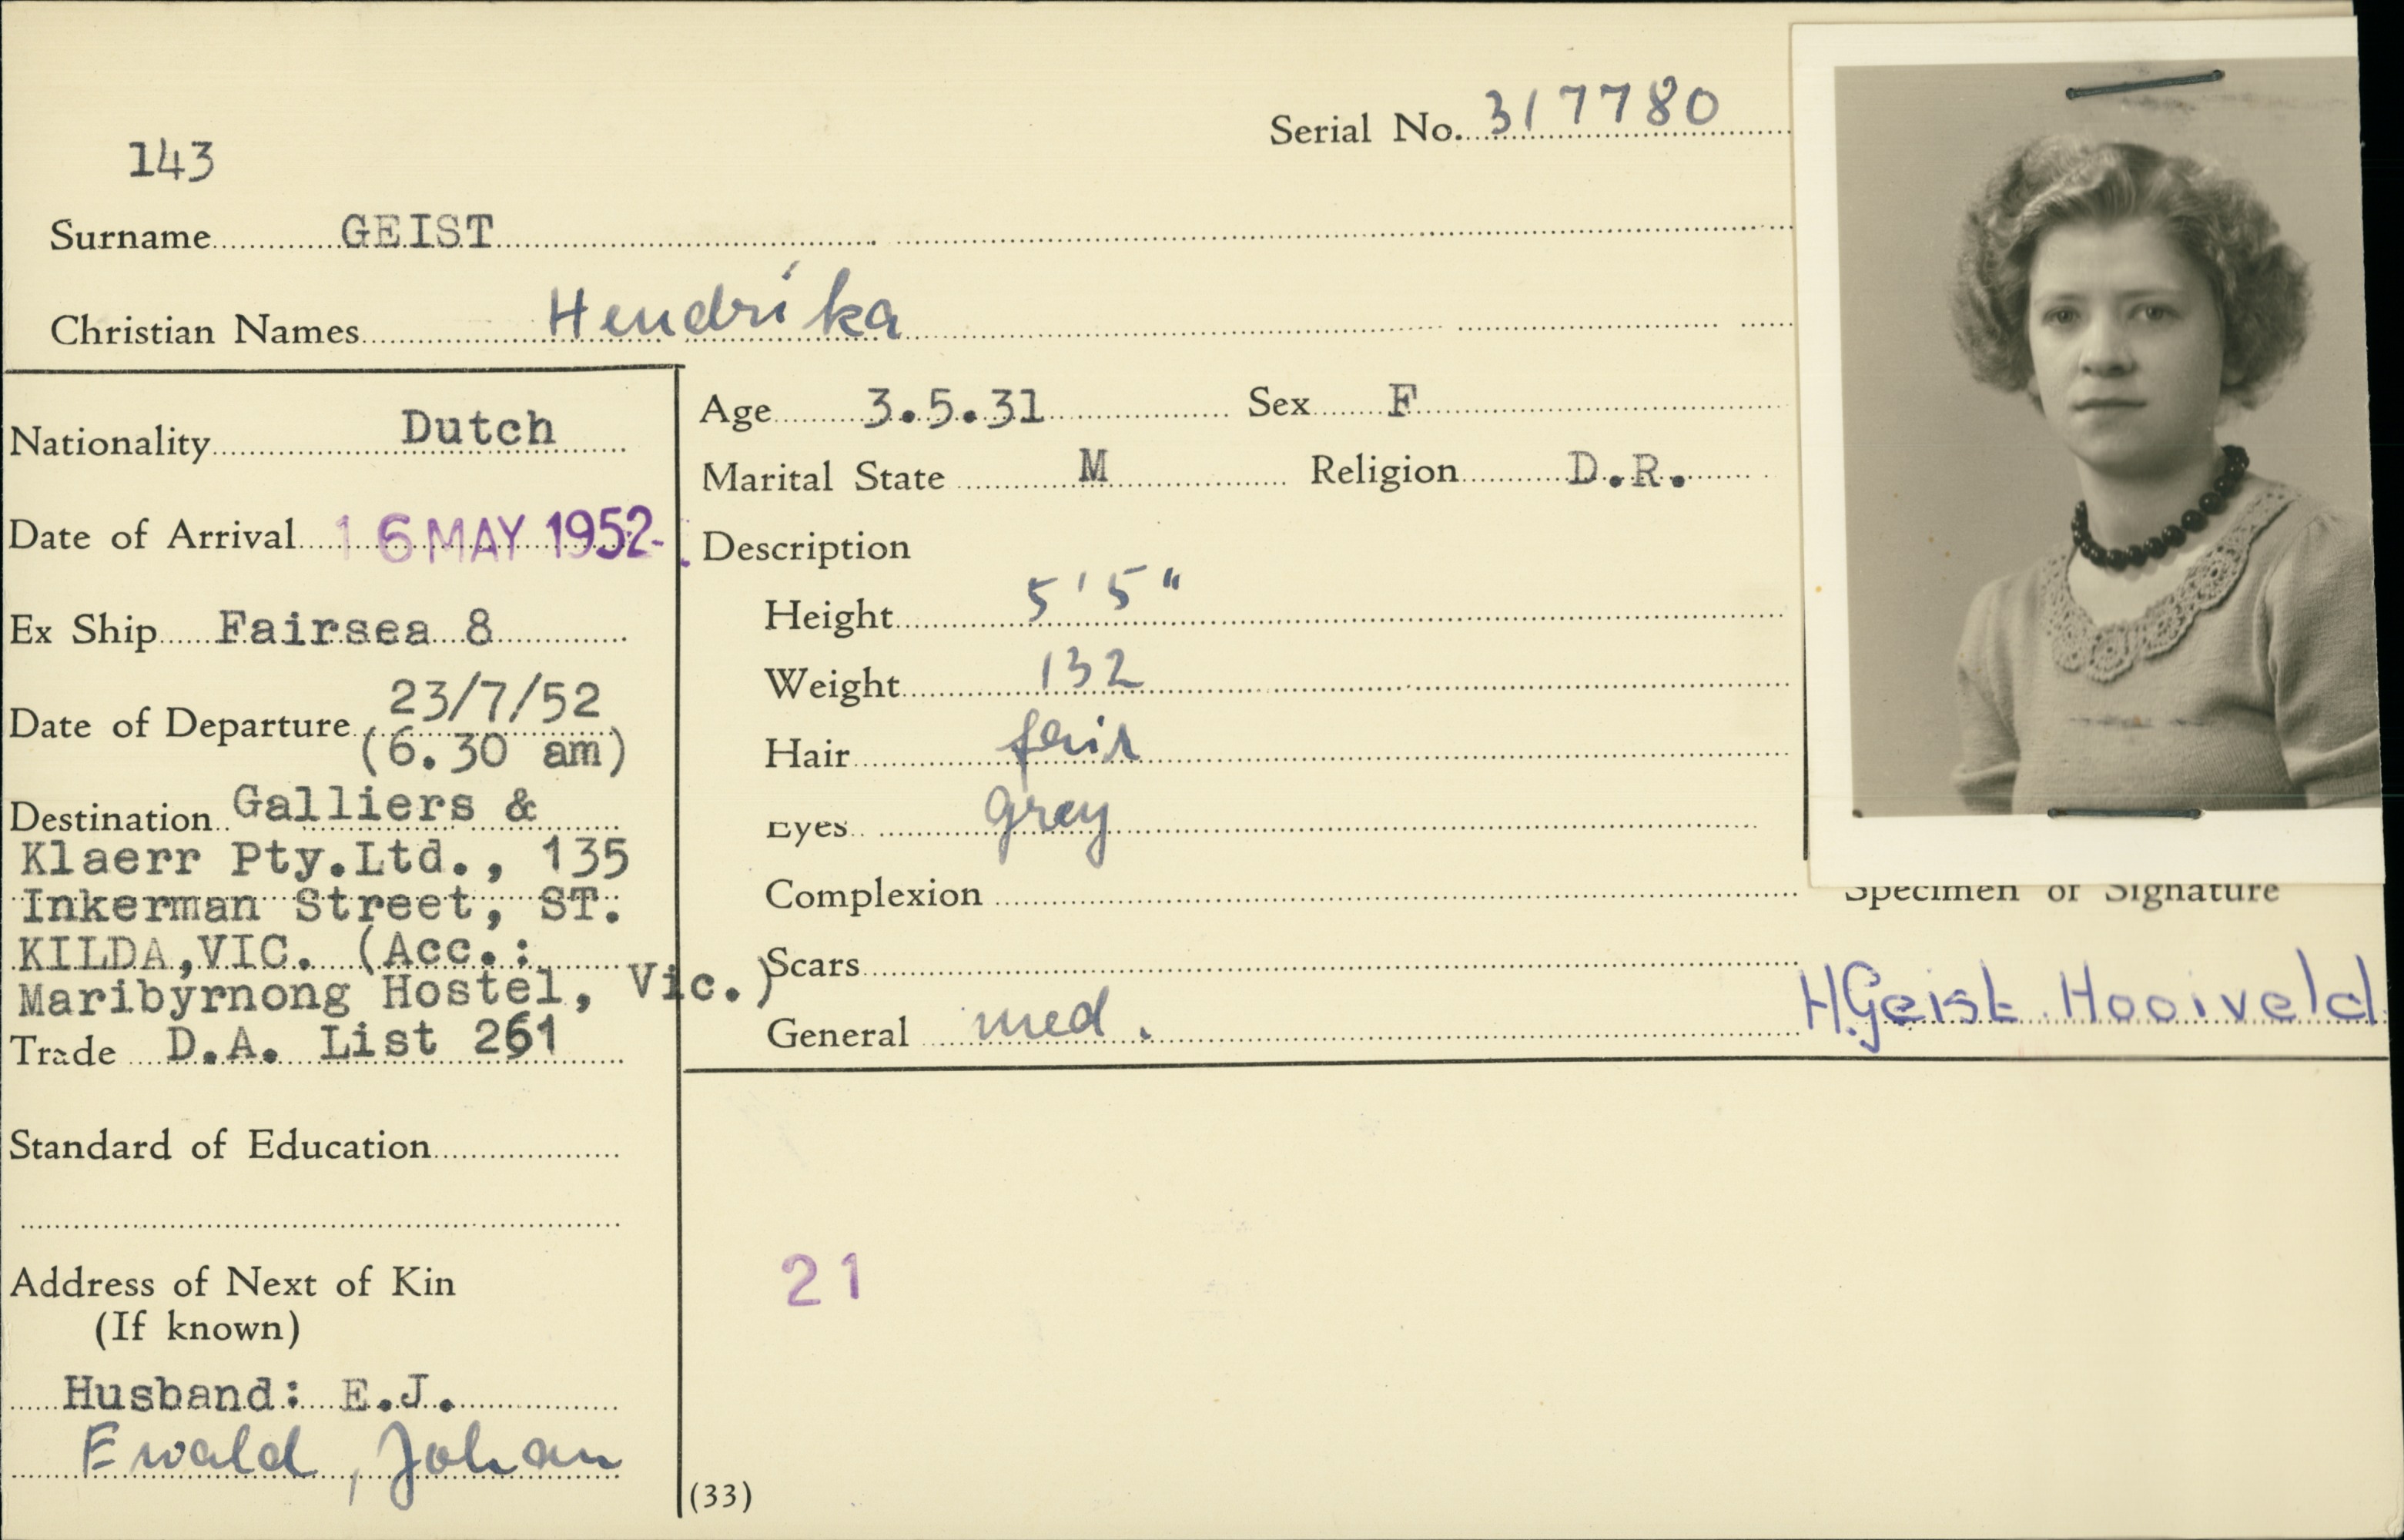 Serial No. 317780
143
Surname GEIST
Christian Names Hendrika
Nationality Dutch
Date of Arrival 16 MAY 1952
Ex Ship Fairsea 8
Date of Departure 23/7/52
(6.30 am)
Destination Galliers &
Klaerr Pty.Ltd., 135
Inkerman Street, ST.
KILDA,VIC. (Acc.:
Maribyrnong Hostel, Vic.)
Trade D.A. List 261
Standard of Education
Address of Next of Kin
(If known)
Husband: E.J.
Ewald, Johan
Age 3.5.31 Sex F
Marital State M Religion D.R.
Description
Height 5'5"
Weight 132
Hair fair
Eyes grey
Complexion
Scars
General med.
Specimen of Signature
H.Geist. Hooiveld
21
(33)